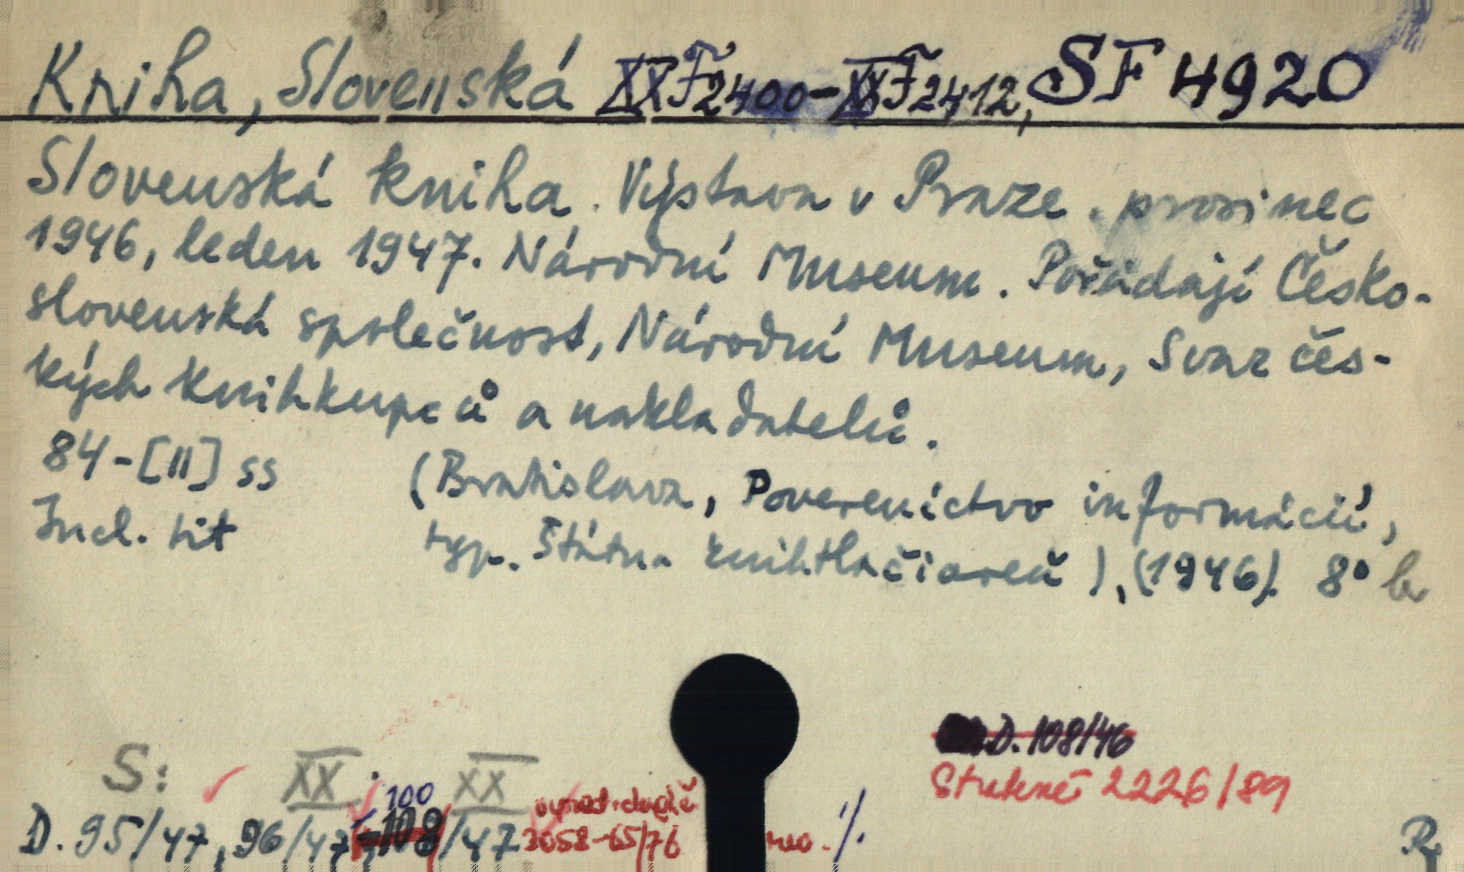 Kniha, Slovenská XXF2400-XXF2412, SF 4920
Slovenská kniha. Výstava v Praze. prosinec
1946, leden 1947. Národní Museum. Pořádají Česko-
slovenská společnost, Národní Museum, Svaz čes-
kých knihkupců a nakladatelů.
84-[II] ss (Bratislava, Povereníctvo informácií,
Incl. tit typ. Státna knihtlačiareň), (1946). 8° br
S: XX XX
D. 108/46
Stržené 2226/89
100
D. 95/47, 96/47, -108/47 3058-65/76